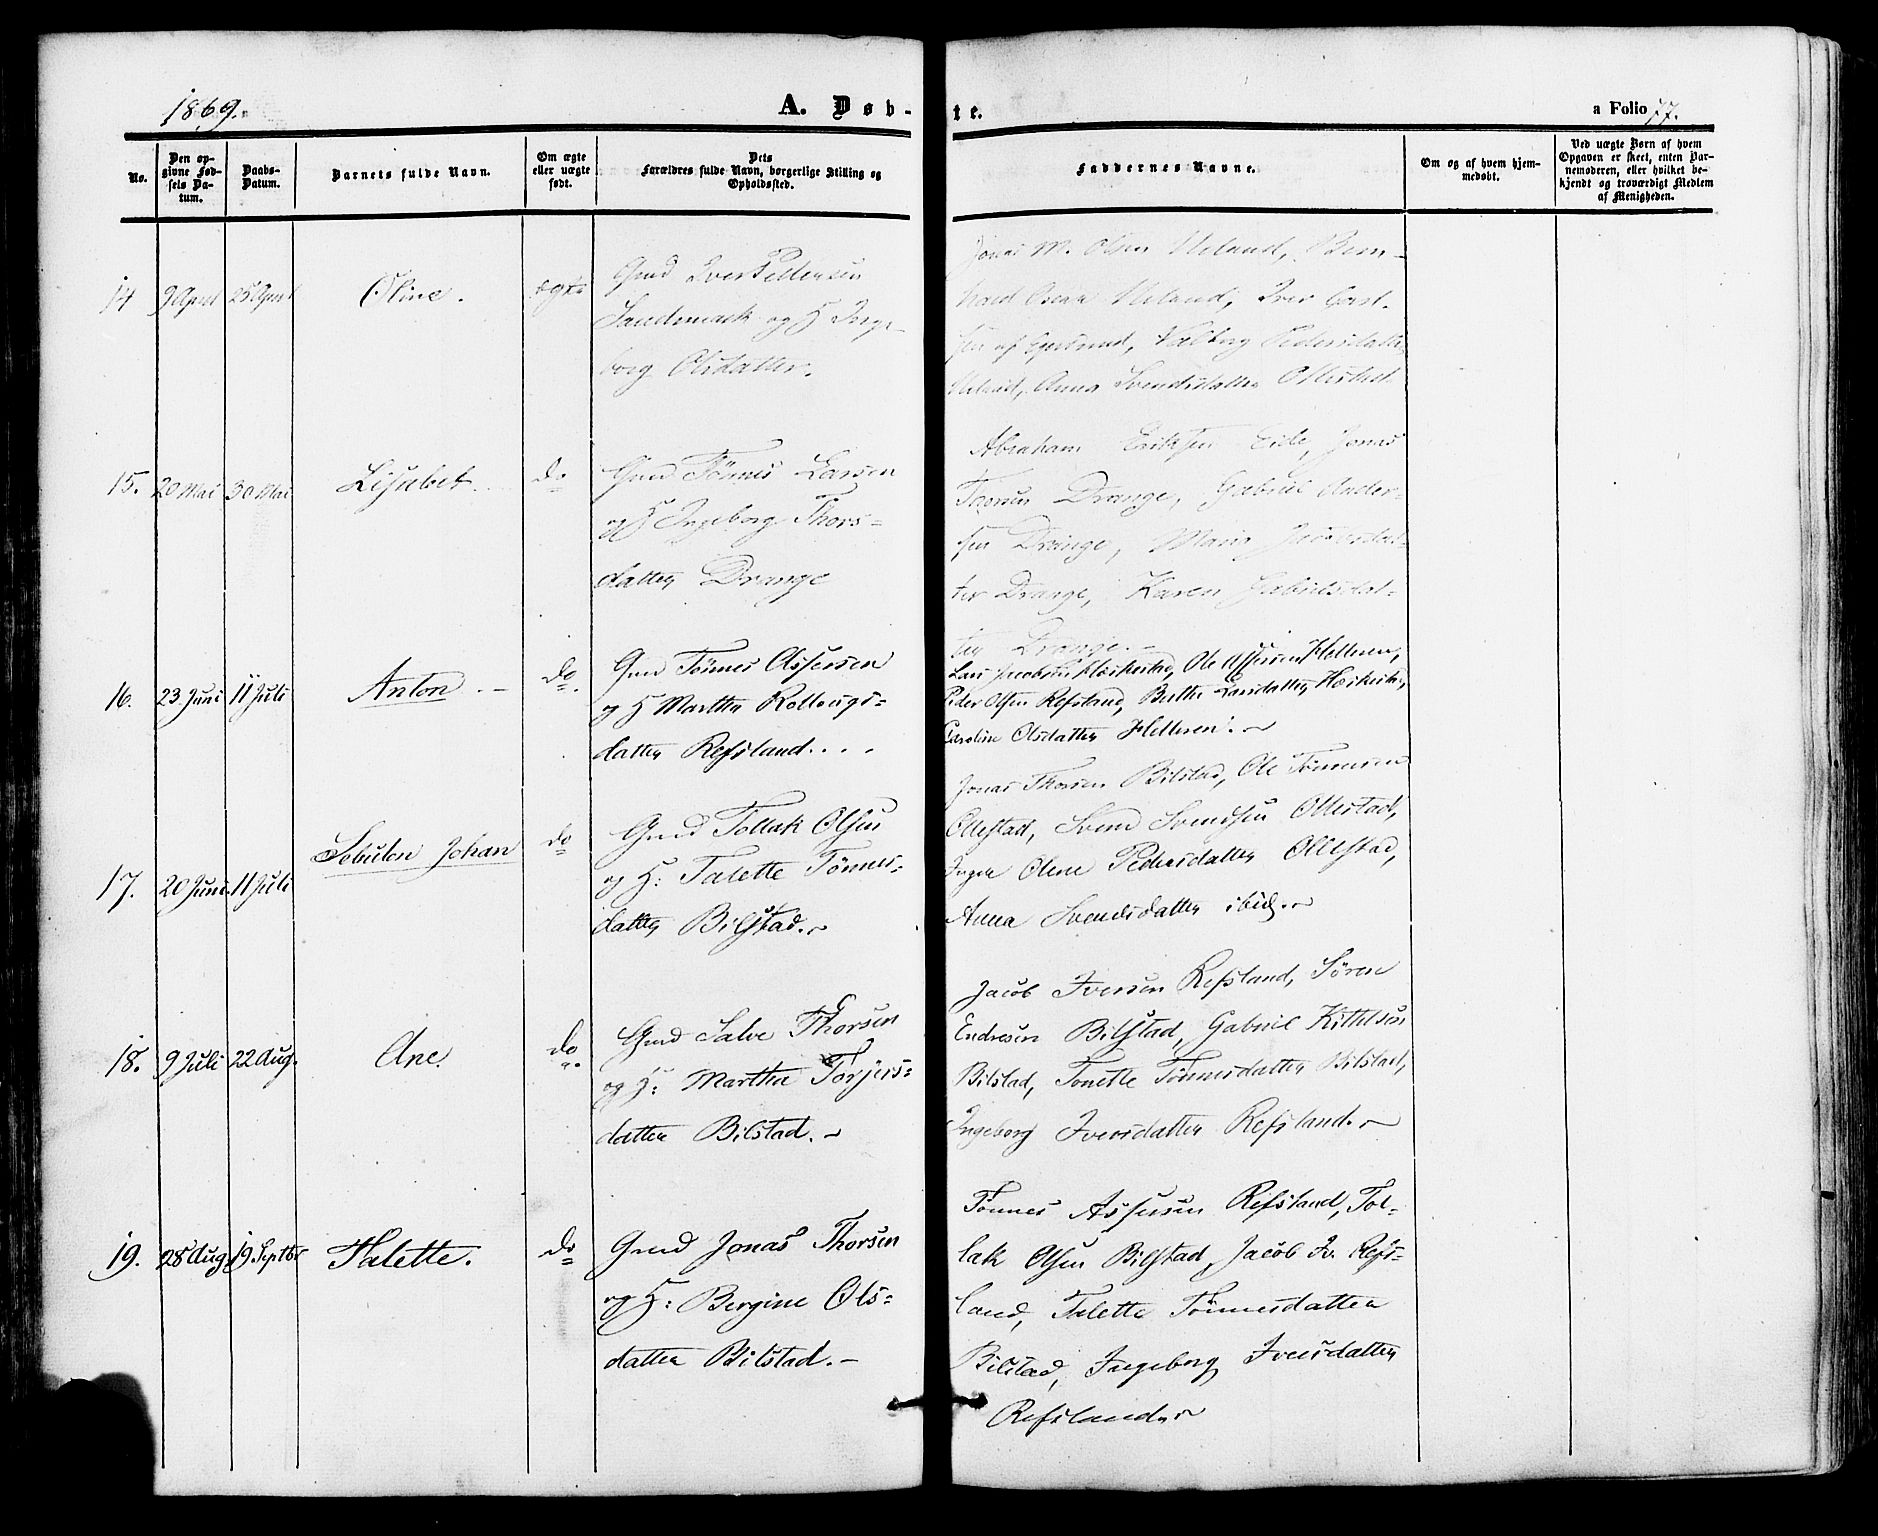 1869.
A. Døb-te.
a Folio 77.
No.
Den op-
givne Fød-
sels Da-
tum.
Daabs-
Datum.
Barnets fulde Navn.
Om ægte
eller uægte
født.
Dets
Forældres fulde Navn, borgerlige Stilling og
Opholdssted.
Faddernes Navne.
Om og af hvem hjem-
medøbt.
Ved uægte Børn af hvem
Opgaven er skeet, enten Bar-
nemoderen, eller hvilket be-
kjendt og troværdigt Medlem
af Menigheden.
14
9 April
25 April
Oline.
ægte
Gmd Iver Pedersen
og H Inge-
borg Olsdatter.
Jonas M. Olsen Ueland, Bern-
hard Oscar Ueland, Iver
af Egersund, Valborg Pedersdatter
Ueland, Anna Svendsdatter Ollestad
15.
20 Mai
30 Mai
Lisabet.
do
Gmd Tönnes Larsen
og H Ingeborg Thors-
datter Drange
Abraham Eriksen Eide, Jonas
Drange, Gabriel Ander-
sen Drange, Maria
ter Drange, Karen Gabrielsdat-
ter Drange.-
16.
23 Juni
11 Juli
Anton. -
do
Gmd Tönnes Assersen
og H Martha Rollougs-
datter Refsland....
Lars Jacobsen Hæskestad, Ole Assersen Helleren,
Peder Olsen Refsland, Berthe Larsdatter Hæskestad,
Caroline Olsdatter Helleren.
17.
20 Juni
11 Juli
Sebulon Johan
do
Gmd Tollak Olsen
og H: Talette Tönnes-
datter Bilstad.
Jonas Thorsen Bilstad, Ole Tönnesen
Ollestad, Svend Svendsen Ollestad,
Olene Pedersdatter Ollestad,
Anna Svendsdatter ibid.
18.
9 Juli
22 Aug.
Ane.
do
Gmd Salve Thorsen
og H: Martha Torjers-
datter Bilstad.
Jacob Iversen Refsland, Sören
Endresen Bilstad, Gabriel Kithelsen
Bilstad, Tonette Tönnesdatter Bilstad,
Ingeborg Iversdatter Refsland.
19.
28 Aug
19 Septbr
Talette.
do
Gmd Jonas Thorsen
og H: Bergine Ols-
datter Bilstad.-
Tönnes Assersen Refsland, Tol-
lak Olsen Bilstad, Jacob Iv. Refs-
land, Talette Tönnesdatter
Bilstad, Ingeborg Iversdatter
Refsland.